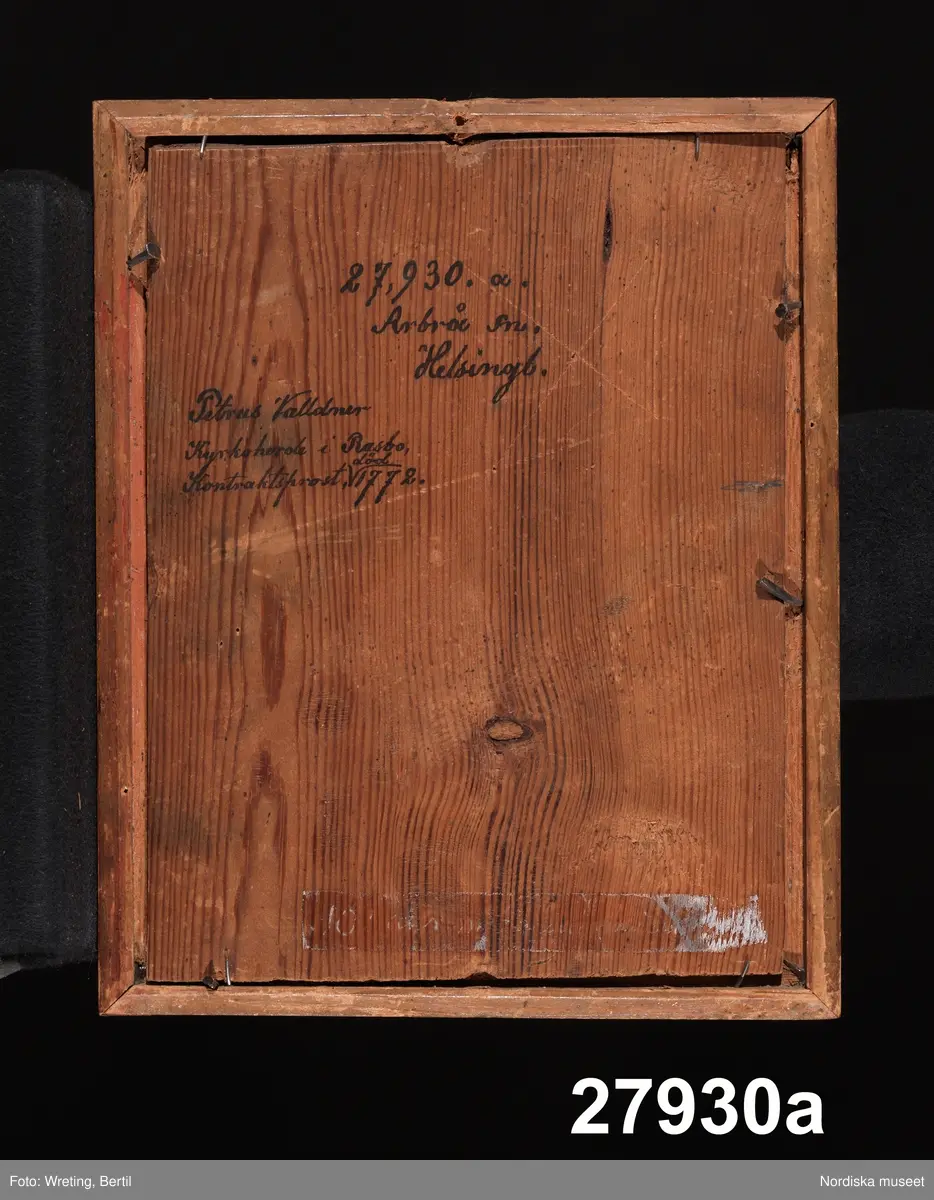 27,930. a.
Arbrå sn.
Helsingl.
Petrus Valldner
Kyrkoherde i Rasbo,
död
Kontraktsprost, V1772.
27930a
Foto: Wreting, Bertil
Nordiska museet